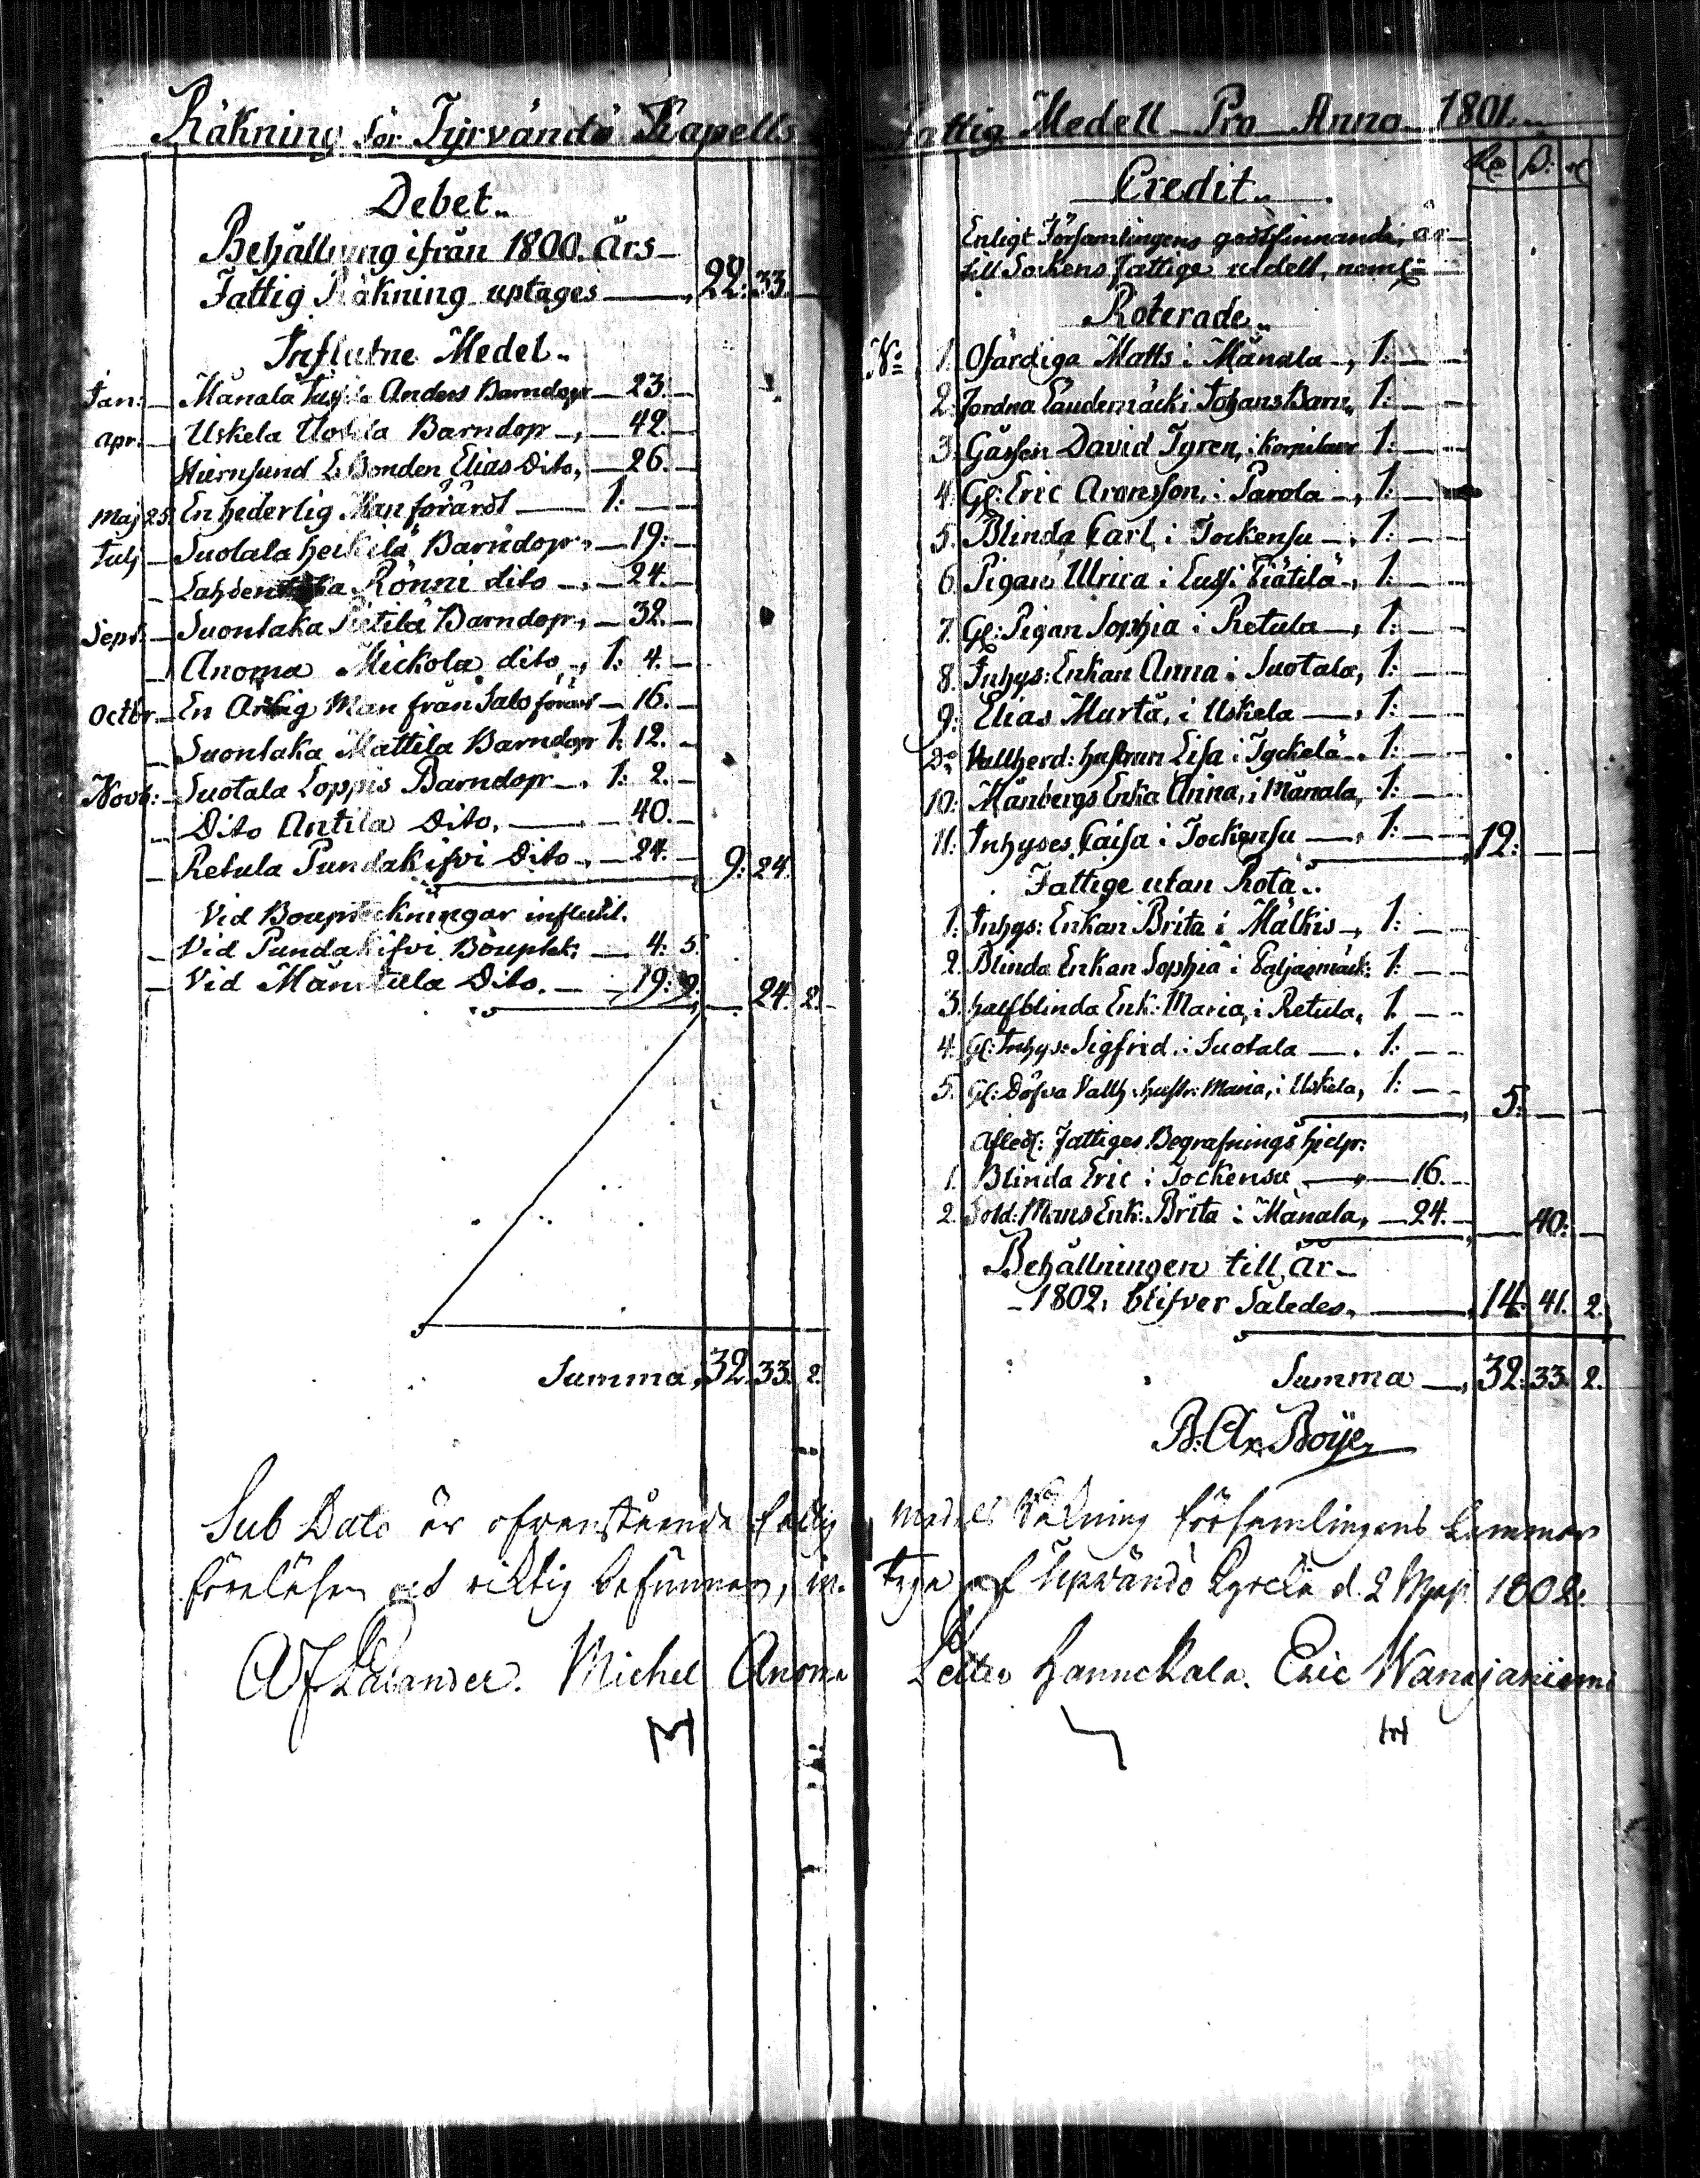 Räkning för Tyrvändö Kapells Fattig Medell Pro Anno 1801.
Debet.
Behållning ifrån 1800. års
Fattig Räkning uptages — 22: 33.
Influtne Medel.
Jan: Månala Anders Barndop — 23.
Apr. Uskela Uotila Barndop — 42.
Hiernsund Bonden Elias Dito, — 26.
Maj 25. En hederlig Man förärdt — 1:
Julj Suotala Heikilä Barndop — 19:
Rönni dito — 24.
Sept. Suontaka Pietilä Barndop, — 32.
Anoma Mickola dito, 1: 4.
Octbr. En Ärlig Man från Salo förärdt — 16.
Suontaka Mattila Barndop 1: 12.
Novb: Suotala Loppis Barndop — 1: 2.
Dito Antila Dito. — 40.
Retula Pundakifvi Dito — 24. 9: 24.
Vid Boupteckningar influtit.
Vid Pundakifvi Bouptek: — 4: 5.
Vid Mäntula Dito. — 19: 9. — 24. 2.
Summa, 32. 33. 2.
Rd ß: rst
Credit.
Enligt Församlingens godtfinnande, är
till Sockens Fattige utdelt, neml:
Roterade.
No 1. Ofärdiga Matts i Månala —, 1:
2. Johans Barn, 1:
3. Gåssen David Tyren, i 1:
4. Gl: Eric Aronsson, i Parola —, 1:
5. Blinda Carl, i Tockensu —, 1:
6. Pigan Ulrica i Lussi Piätilä —, 1:
7. Gl: Pigan Sophia i Retula —, 1:
8. Inhys: Enkan Anna i Suotala, 1:
9. Elias Murtä, i Uskela —, 1:
Do Vallherd: hustrun Lisa i Tyckelä —, 1:
10. Månbergs Enka Anna, i Månala, 1:
11. Inhyses Caisa i Tockensu —, 1: — 12:
Fattige utan Rota.
1. Inhys: Enkan Brita i Mälkis —, 1:
2. Blinda Enkan Sophia i 1:
3. halfblinda Enk: Maria, i Retula, 1.
4. Gl: Inhys: Sigfrid i Suotala —. 1:
5. Gl: Döfva Vallh: hustr: Maria, i Uskela, 1: — 5:
Afled: Fattiges Begrafnings hjelp:
1. Blinda Eric i Tockensu — 16.
2. Sold: Mans Enk: Brita i Månala, — 24. — 40:
Behållningen till år
1802, blifver Således, — 14. 41. 2.
Summa —, 32: 33. 2.
B: Ax: Boije
Sub Dato är ofvanstående fattig Medels Räkning församlingens Lemmar
föreläsen och riktig befunnen, intyga af Tyrvändö Kyrcka d. 2 Maji 1802.
Michel Anoma Hannckala. Eric Wanajaniemi